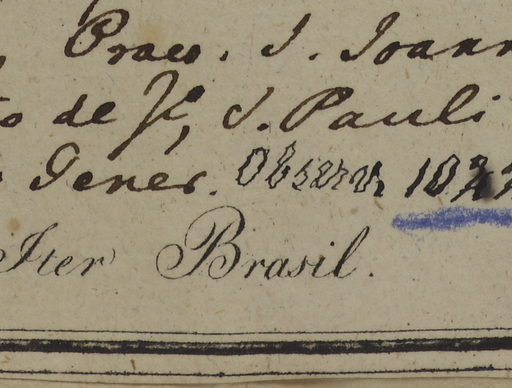 Praes. S. Joann
to de Jo, S. Pauli
Gener. Observ. 10
Iter Brasil.